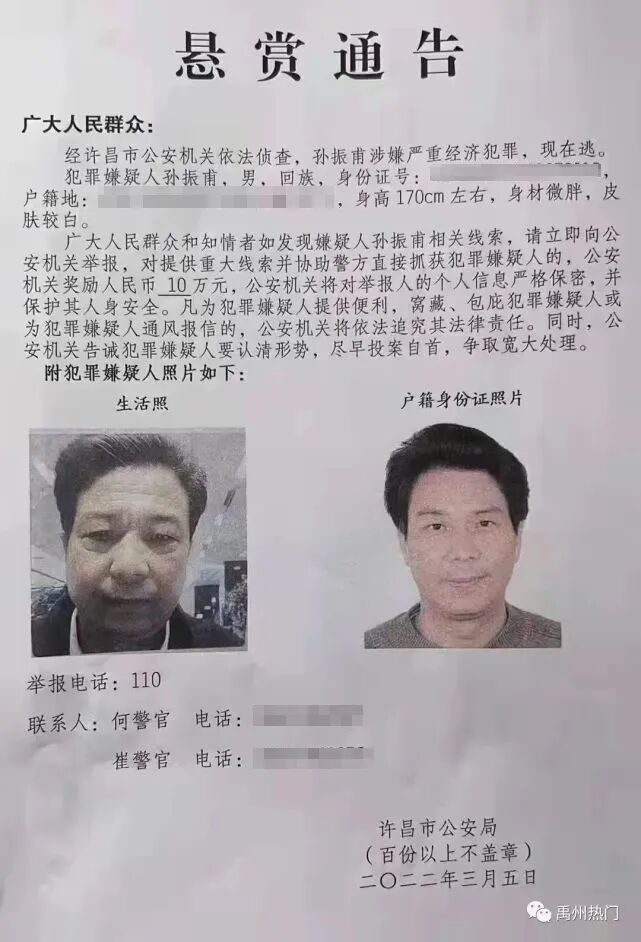 悬赏通告
广大人民群众：
经许昌市公安机关依法侦查，孙振甫涉嫌严重经济犯罪，现在逃。
犯罪嫌疑人孙振甫，男，回族，身份证号：
户籍地： ，身高170cm左右，身材微胖，皮
肤较白。
广大人民群众和知情者如发现嫌疑人孙振甫相关线索，请立即向公
安机关举报，对提供重大线索并协助警方直接抓获犯罪嫌疑人的，公安
机关奖励人民币 10 万元，公安机关将对举报人的个人信息严格保密，并
保护其人身安全。凡为犯罪嫌疑人提供便利，窝藏、包庇犯罪嫌疑人或
为犯罪嫌疑人通风报信的，公安机关将依法追究其法律责任。同时，公
安机关告诫犯罪嫌疑人要认清形势，尽早投案自首，争取宽大处理。
附犯罪嫌疑人照片如下：
生活照
户籍身份证照片
举报电话：110
联系人：何警官 电话：
崔警官 电话：
许昌市公安局
（百份以上不盖章）
二〇二二年三月五日
禹州热门